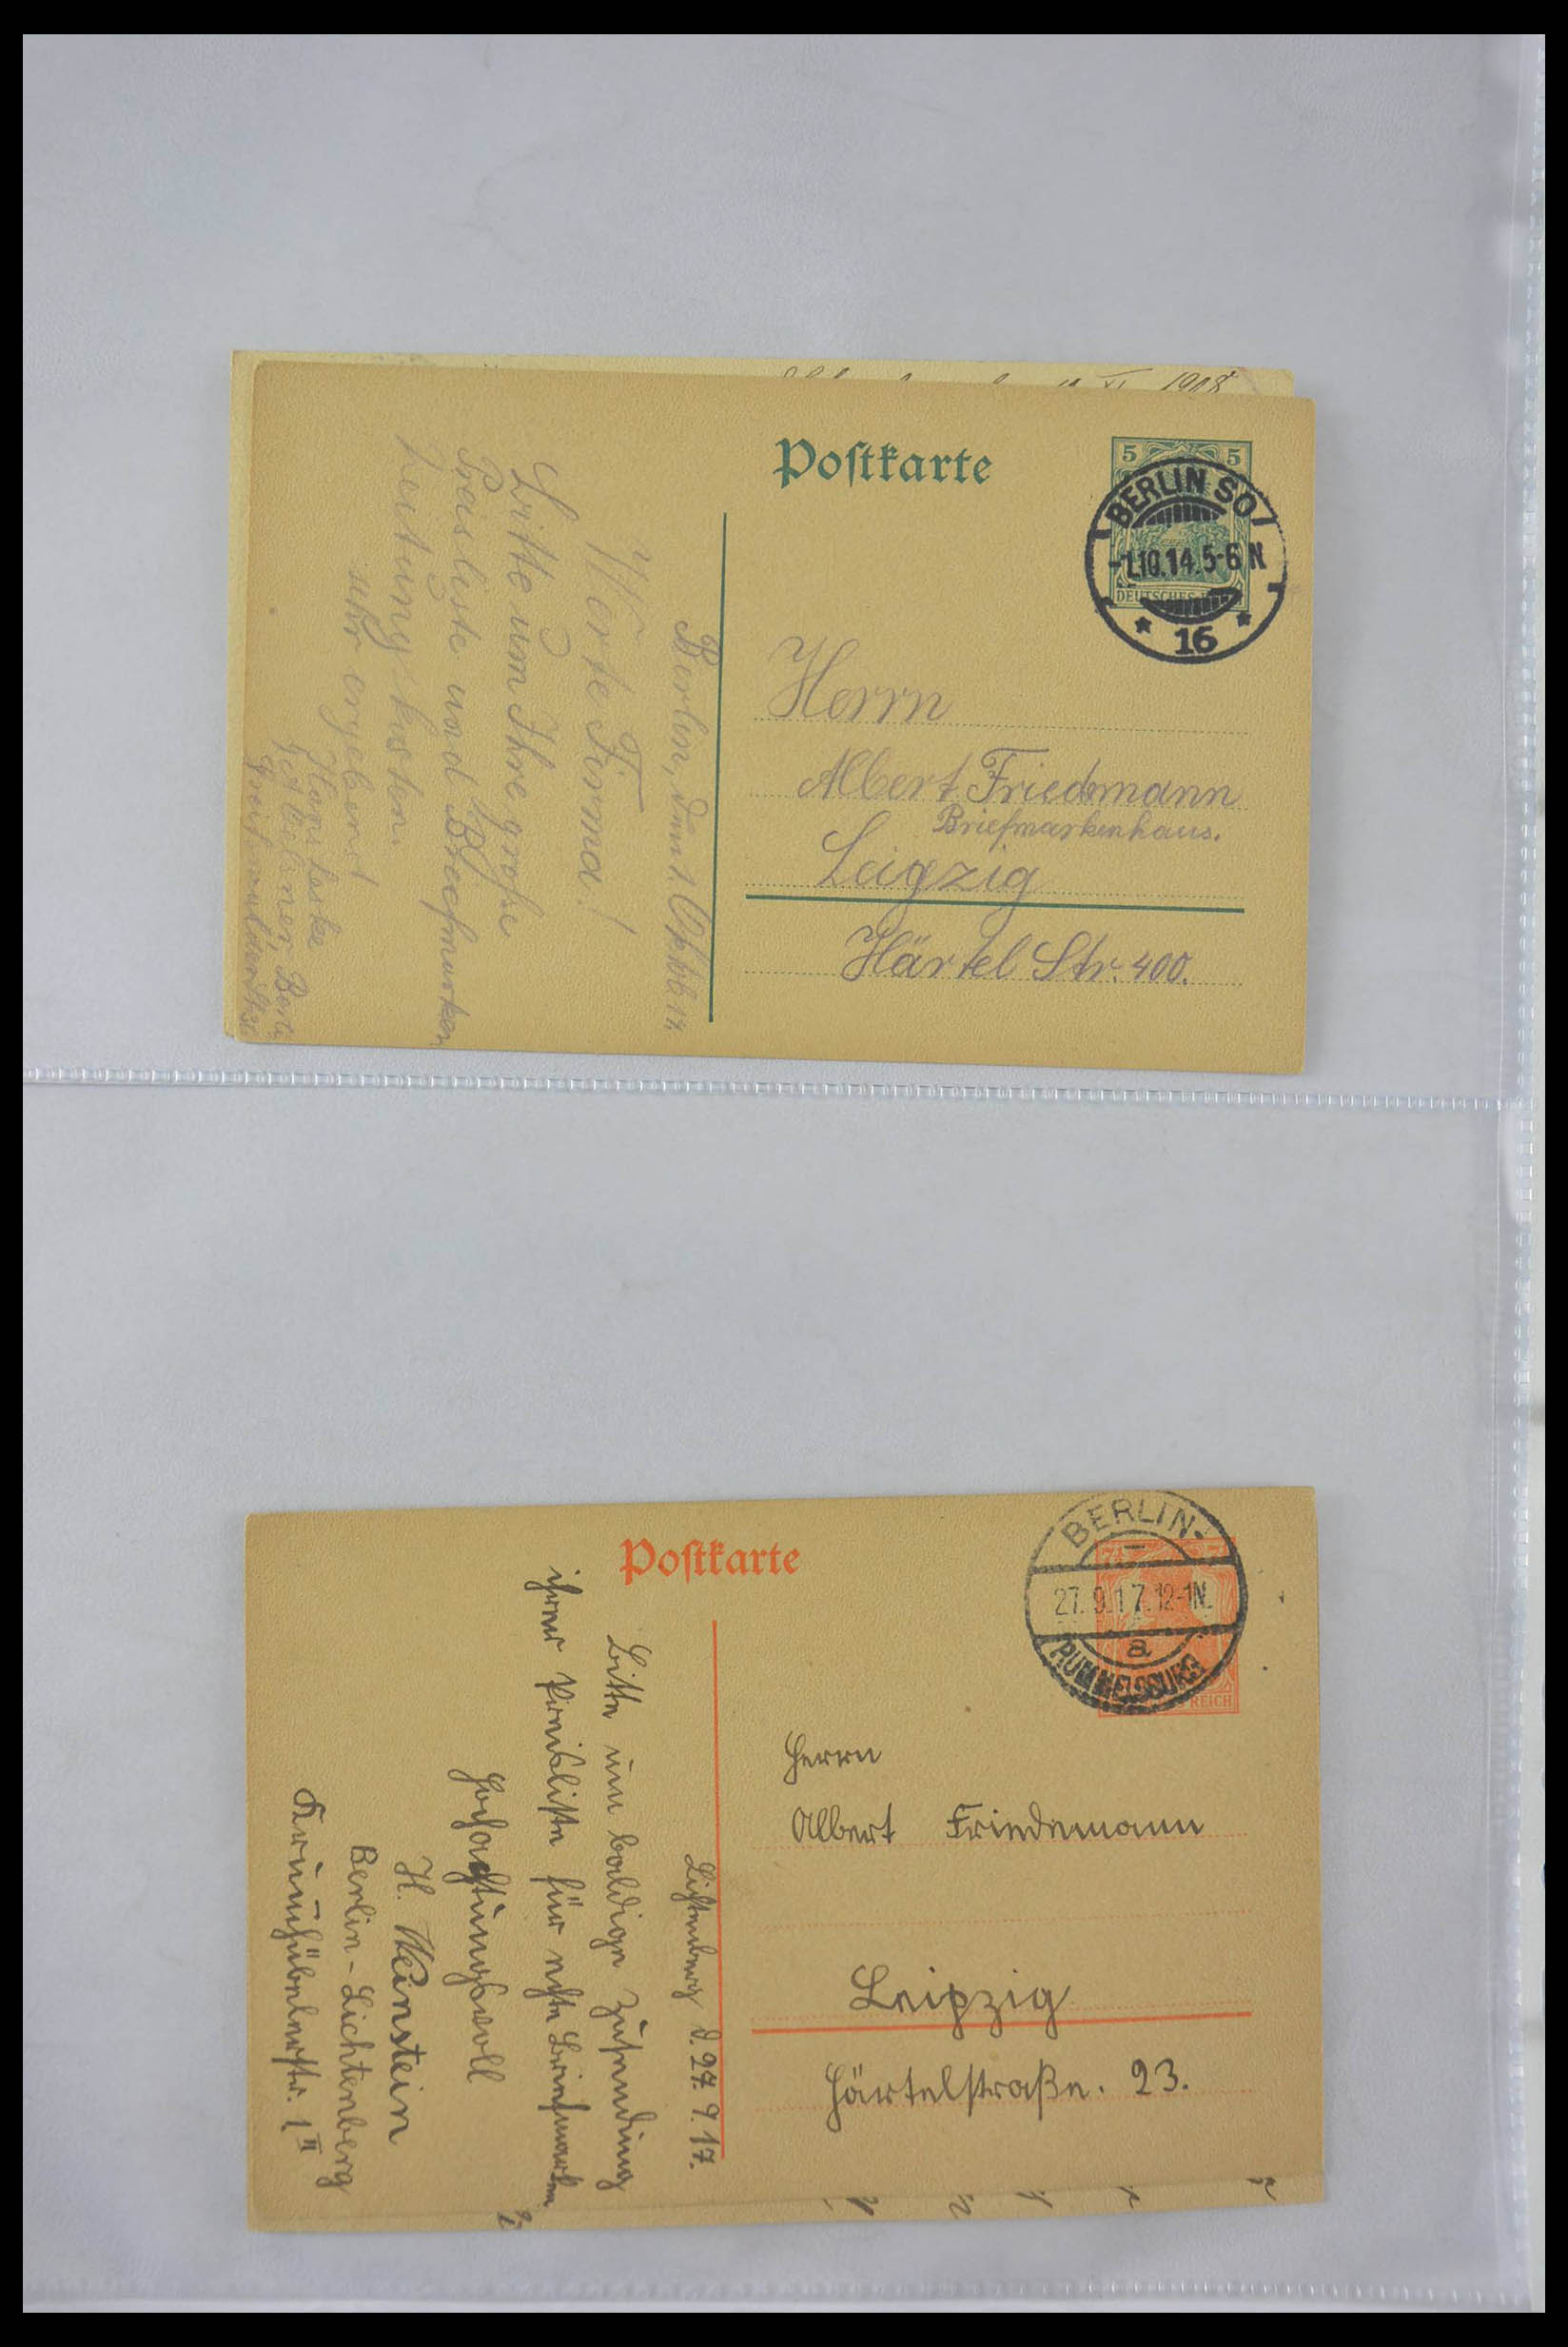 1908
Postkarte
5 5
BERLIN SO
-1.10.14.5-6N
DEUTSCHES
* 16 *
Herrn
Albert Friedemann
Briefmarkenhaus.
Leipzig
Härtel Str. 400.
Berlin, den 1.
Werte Firma!
Bitte um Ihre große
Preisliste und Briefmarken
zeitung kosten.
sehr ergebenst
Hans
Berlin
Postkarte
BERLIN-
27.9.17.12-1N.
a
RUMMELSBURG
REICH
Herrn
Albert Friedemann
Leipzig
Härtelstraße. 23.
Lichtenberg d. 27. 9. 17.
Bitte um baldige Zusendung
ihrer Preisliste für echte Briefmarken
Hochachtungsvoll
H. Weinstein
Berlin-Lichtenberg
Krummhübelerstr. 1 II